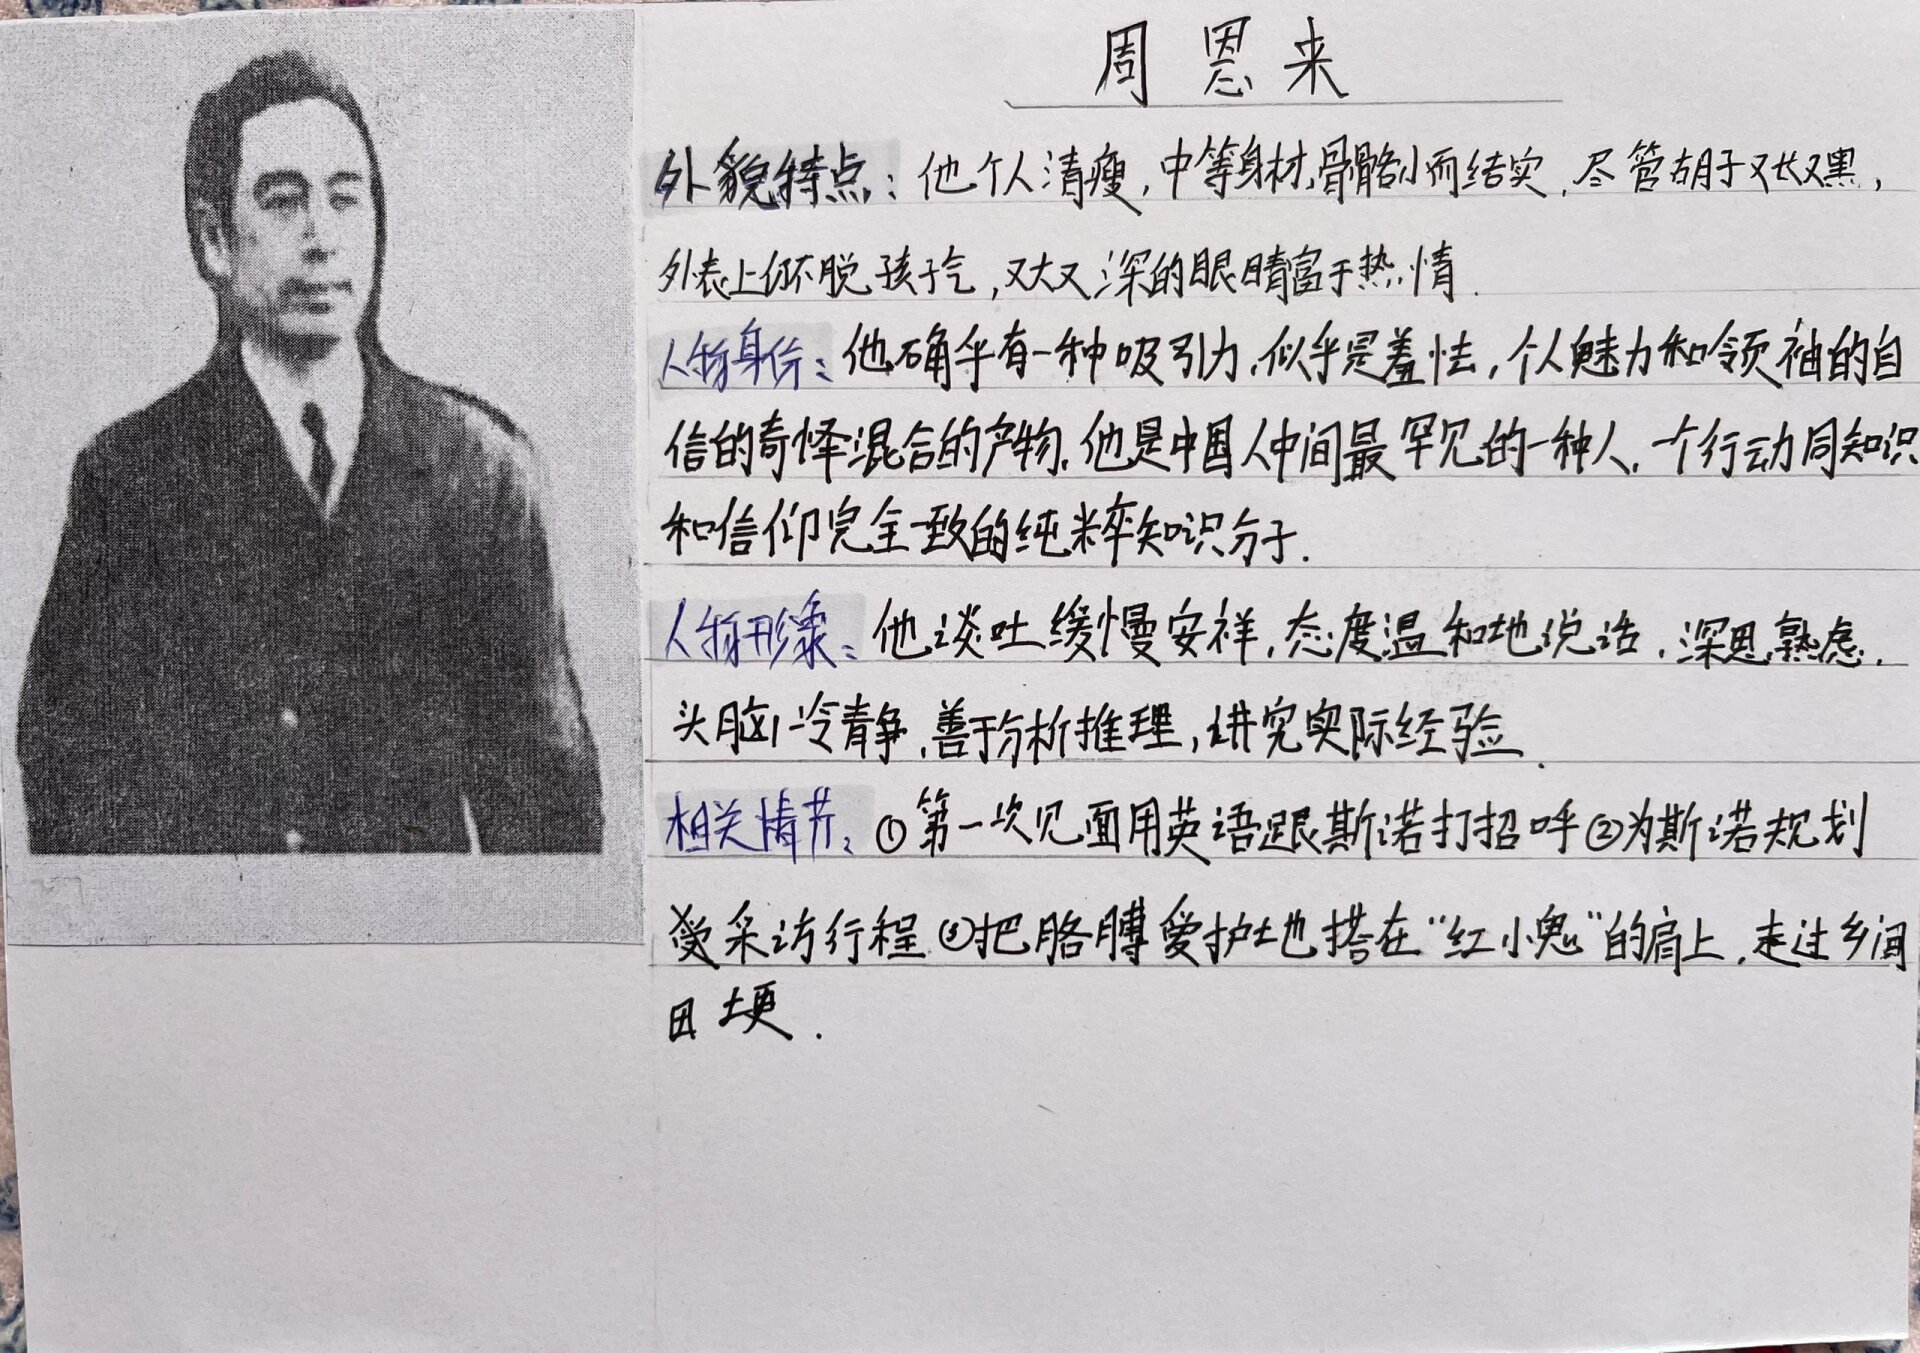 周恩来
外貌特点：他个人清瘦，中等身材，骨骼小而结实，尽管胡子又长又黑，
外表上仍不脱孩子气，又大又深的眼睛富于热情.
人物身份：他确乎有一种吸引力，似乎是羞怯，个人魅力和领袖的自
信的奇怪混合的产物，他是中国人中间最罕见的一种人，一个行动同知识
和信仰完全一致的纯粹知识分子.
人物形象：他谈吐缓慢安祥，态度温和地说话，深思熟虑，
头脑冷静，善于分析推理，讲究实际经验.
相关情节：①第一次见面用英语跟斯诺打招呼②为斯诺规划
受采访行程③把胳膊爱护地搭在“红小鬼”的肩上，走过乡间
田埂.